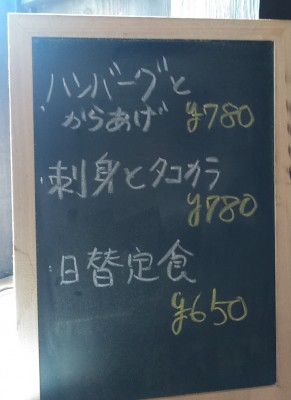 ハンバーグと
からあげ ¥780
刺身とタコカラ
¥780
日替定食
¥650